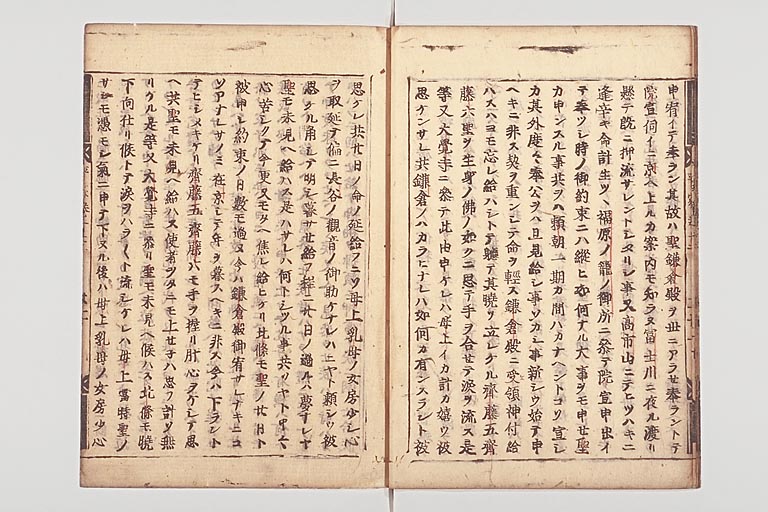 申宥イテ奉ラン其故ハ聖鎌倉殿ヲ世ニアラセ奉ラントテ
院宣伺イニ京ヘ上ルカ案内モ知ラヌ冨士川ニ夜ル渡リ
懸テ既ニ押流サレントシタリシ事又高市山ニテヒツハキニ
逢辛キ命計生ツヽ福原ノ籠ノ御所ニ参テ院宣申出イ
テ奉ツシ時ノ御約束ニハ縦ヒ如何ナル大事ヲモ申セ聖
カ申ンスル事共ヲハ頼朝一期カ間ハカナヘントコソ宣シ
カ其外度々ノ奉公ヲハ且見給シ事ソカシ事新シウ始テ申
ヘキニ非ス契ヲ重シテ命ヲ軽ス鎌倉殿ニ受領神付給
ハスハヨモ忘レ給ハシトテ軈テ其暁ソ立レケル齊藤五齊
藤六聖ヲ生身ノ佛ノ如クニ思テ手ヲ合セテ涙ヲ流ス是
等又大覚寺ニ参テ此由申ケレハ母上イカ計カ嬉ウ被
思ケンサレ共鎌倉ノハカラヒナレハ如何カ有ンスラント被
思ケレ共廿日ノ命ノ延給フニソ母上乳母ノ女房少シ心
ヲ取延テ偏ニ長谷ノ観音ノ御助ケナレハニヤト頼シウ被
思ケル角シテ明シ暮サセ給フ程ニ廿日ノ過ルハ夢ナレヤ
聖モ未見ヘ給ハス是ハサレハ何トシツル事共ソヤト中々
心苦シクテ今更又モタヘ焦レ給ヒケリ北條モ聖ノ廿日ト
被申シ約束ノ日数モ過ヌ今ハ鎌倉殿御宥サレナキニコ
ソアナレサノミ在京シテ年ヲ暮スヘキニ非ス今ハ下ラント
テヒシメキケリ齊藤五齊藤六モ手ヲ握リ肝心ヲケシテ思
ヘ共聖モ未見ヘ給ハス使者ヲタニモ上セ子ハ思フ計ソ無
リケル是等又大覚寺ニ参リ聖モ未見ヘ候ハス北條モ暁
下向仕リ候トテ涙ヲハラ〳〵ト流シケレハ母上冨時聖ノ
サシモ憑モシ氣ニ申テ下ヌル後ハ母上乳母ノ女房少シ心